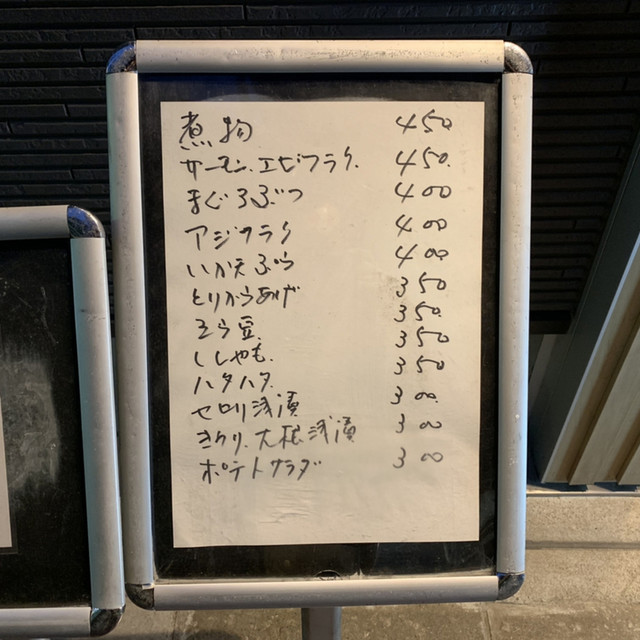 煮物 450
サーモン.エビフライ. 450.
まぐろぶつ 400
アジフライ 400
いか天ぷら 400
とりからあげ 350
そら豆 350
ししゃも. 350
ハタハタ. 350
セロリ浅漬 300.
きうり.大根浅漬 300
ポテトサラダ 300